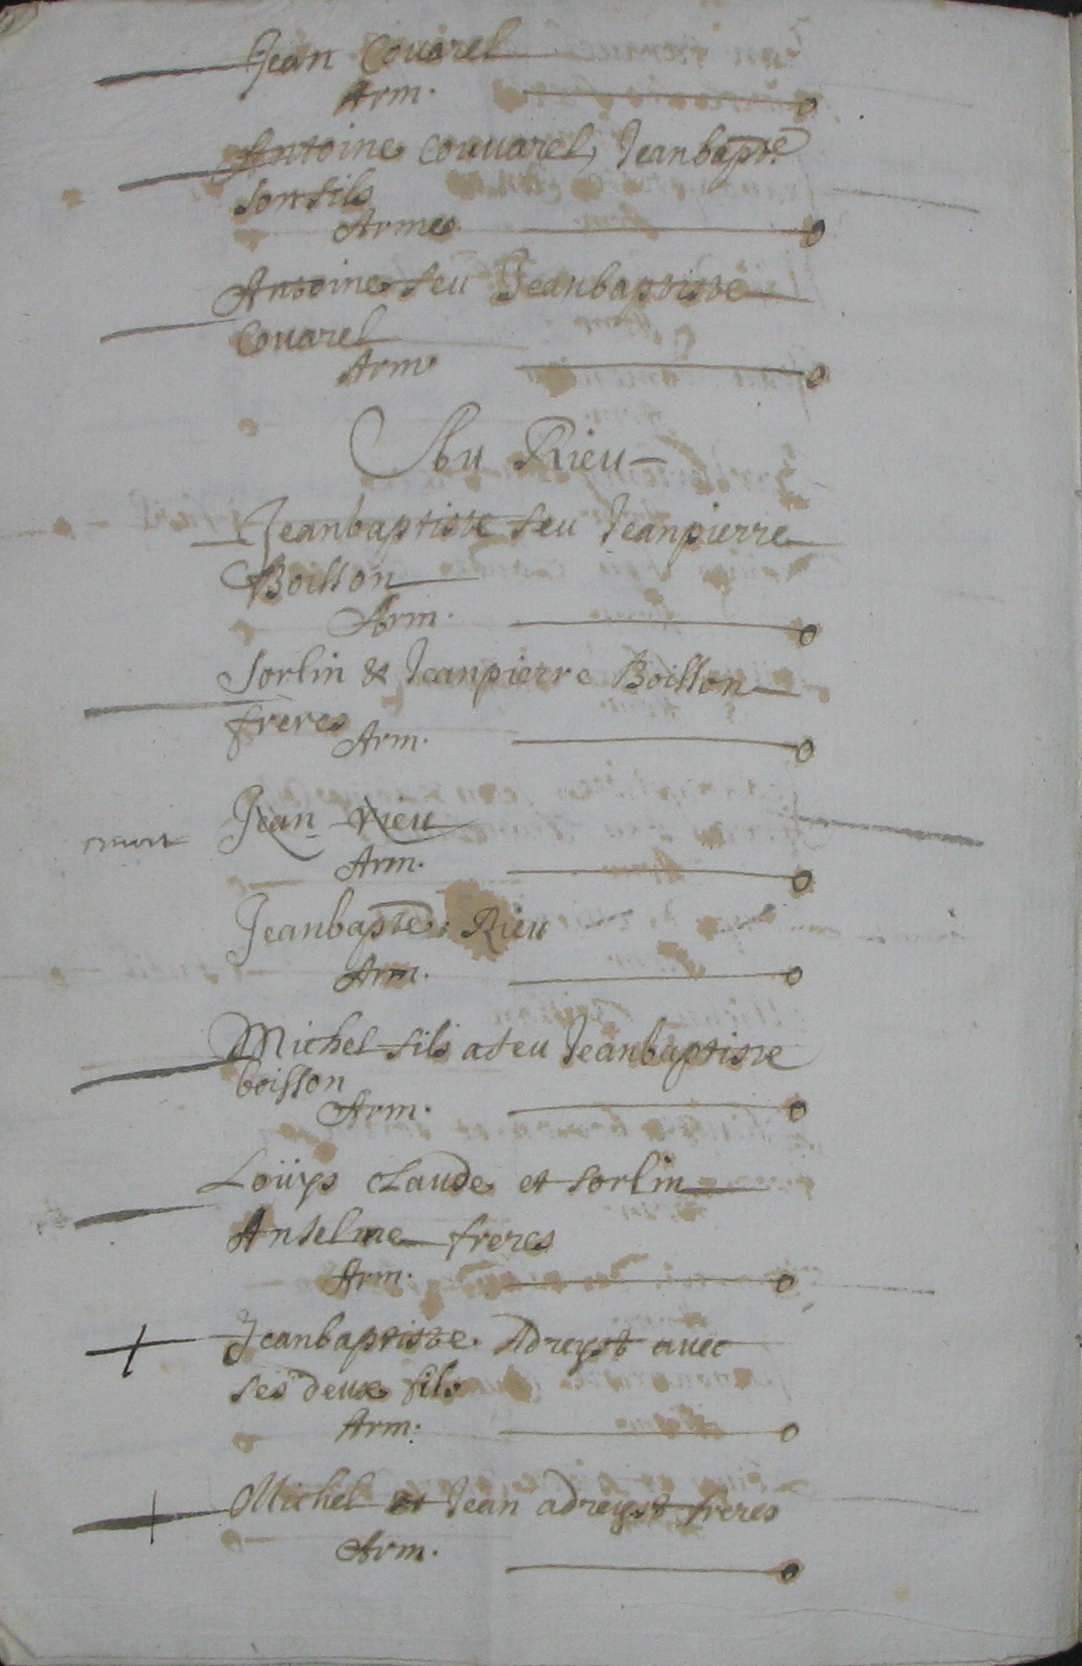 Jean Couarel
Arm. o
Antoine Couuarel, Jeanbapte
son fils
Armes o
Antoine feu Jeanbaptiste
Couarel
Arm. o
Au Rieu
Jeanbaptiste feu Jeanpierre
Boisson
Arm. o
Sorlin & Jeanpierre Boisson
freres
Arm. o
mort Jean Rieu
Arm. o
Jeanbapte: Rieu
Arm. o
Michel fils a feu Jeanbaptiste
boisson
Arm. o
Loüys Claude et Sorlin
Anselme freres
Arm. o
+ Jeanbaptiste Adreyst avec
ses deux fils
Arm: o
+ Michel et Jean adreyst freres
Arm. o